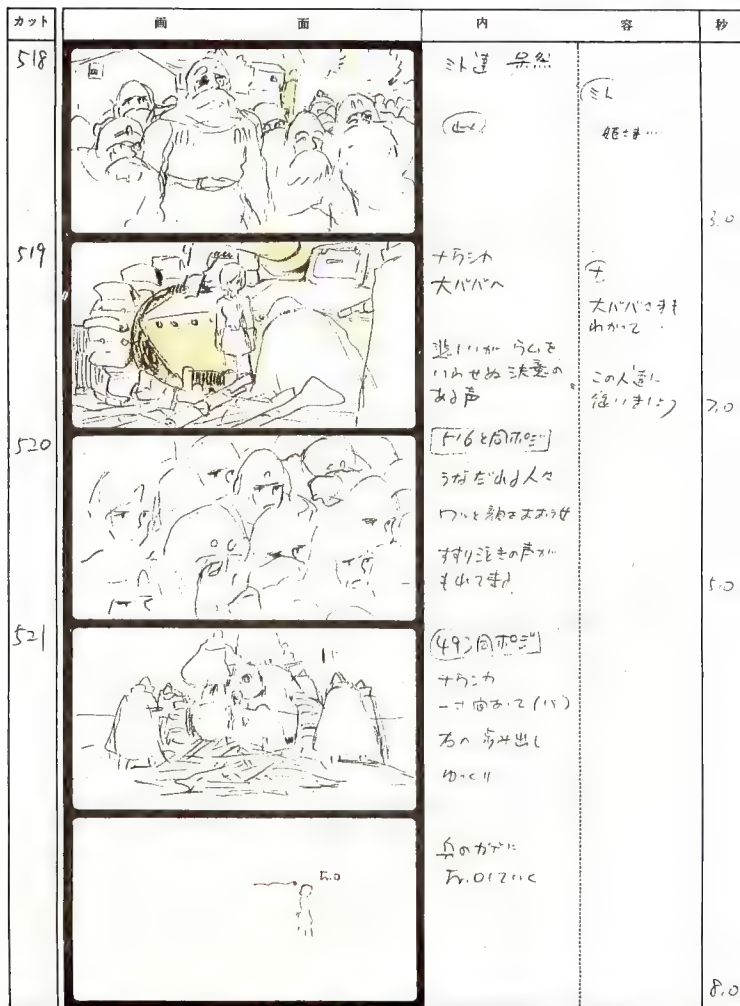 カット 画 面 内 容 秒
518
ミト達 呆然
(止メ)
ミト
姫さま…
3.0
519
ナウシカ
大ババへ
悲しいが うむを
いわせぬ 決意の
ある声
ナ
大ババさまも
わかって
この人達に
従いましょう
7.0
520
516と同ポジ
うなだれる人々
ワッと顔をおおう女
すすり泣きの声が
もれて来る
5.0
521
同ポジ
ナウシカ
一寸 間あって
右へ 歩み出し
ゆっくり
Fr.O
兵のカゲに
Fr.Oしていく
8.0